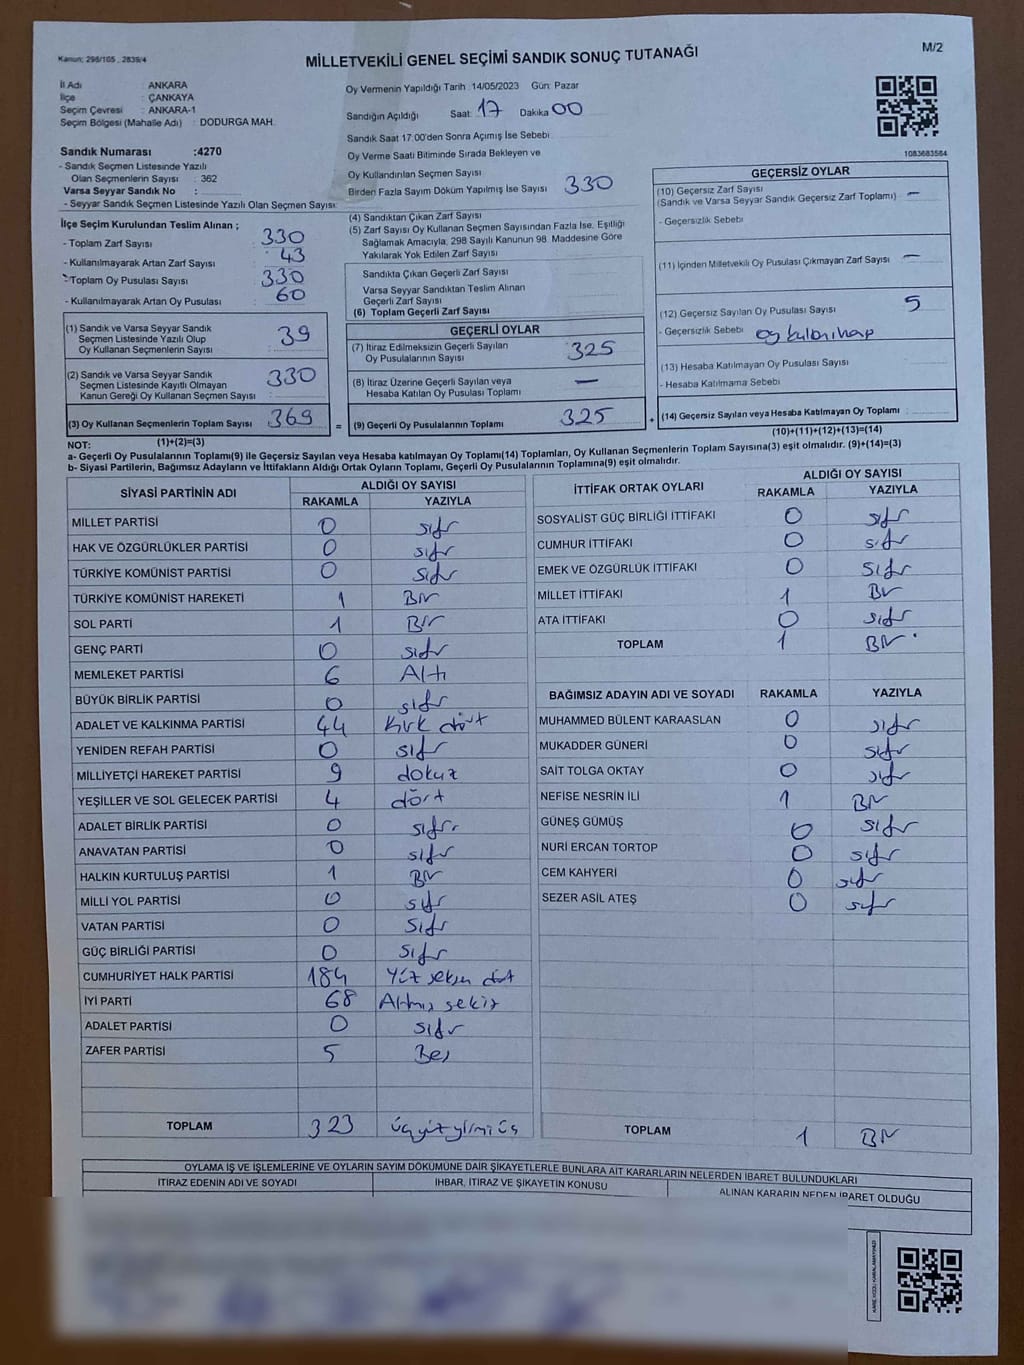 Kanun: 298/105 , 2839/4
MİLLETVEKİLİ GENEL SEÇİMİ SANDIK SONUÇ TUTANAĞI
M/2
İl Adı : ANKARA
İlçe : ÇANKAYA
Seçim Çevresi : ANKARA-1
Seçim Bölgesi (Mahalle Adı) : DODURGA MAH.
Sandık Numarası :4270
- Sandık Seçmen Listesinde Yazılı
Olan Seçmenlerin Sayısı : 362
Varsa Seyyar Sandık No :
- Seyyar Sandık Seçmen Listesinde Yazılı Olan Seçmen Sayısı:
Oy Vermenin Yapıldığı Tarih :14/05/2023 Gün: Pazar
Sandığın Açıldığı Saat: 17 Dakika 00
Sandık Saat 17:00'den Sonra Açımış İse Sebebi
Oy Verme Saati Bitiminde Sırada Bekleyen ve
Oy Kullandırılan Seçmen Sayısı
Birden Fazla Sayım Döküm Yapılmış İse Sayısı 330
1083683584
İlçe Seçim Kurulundan Teslim Alınan ;
- Toplam Zarf Sayısı : 330
- Kullanılmayarak Artan Zarf Sayısı : 43
- Toplam Oy Pusulası Sayısı : 330
- Kullanılmayarak Artan Oy Pusulası : 60
(1) Sandık ve Varsa Seyyar Sandık
Seçmen Listesinde Yazılı Olup
Oy Kullanan Seçmenlerin Sayısı : 39
(2) Sandık ve Varsa Seyyar Sandık
Seçmen Listesinde Kayıtlı Olmayan
Kanun Gereği Oy Kullanan Seçmen Sayısı : 330
(3) Oy Kullanan Seçmenlerin Toplam Sayısı : 369
(1)+(2)=(3)
(4) Sandıktan Çıkan Zarf Sayısı
(5) Zarf Sayısı Oy Kullanan Seçmen Sayısından Fazla İse, Eşitliği
Sağlamak Amacıyla, 298 Sayılı Kanunun 98. Maddesine Göre
Yakılarak Yok Edilen Zarf Sayısı
Sandıkta Çıkan Geçerli Zarf Sayısı
Varsa Seyyar Sandıktan Teslim Alınan
Geçerli Zarf Sayısı
(6) Toplam Geçerli Zarf Sayısı
GEÇERLİ OYLAR
(7) İtiraz Edilmeksizin Geçerli Sayılan
Oy Pusulalarının Sayısı : 325
(8) İtiraz Üzerine Geçerli Sayılan veya
Hesaba Katılan Oy Pusulası Toplamı : —
= (9) Geçerli Oy Pusulalarının Toplamı : 325 +
GEÇERSİZ OYLAR
(10) Geçersiz Zarf Sayısı
(Sandık ve Varsa Seyyar Sandık Geçersiz Zarf Toplamı) : —
- Geçersizlik Sebebi
(11) İçinden Milletvekili Oy Pusulası Çıkmayan Zarf Sayısı : —
(12) Geçersiz Sayılan Oy Pusulası Sayısı : 5
- Geçersizlik Sebebi
(13) Hesaba Katılmayan Oy Pusulası Sayısı
- Hesaba Katılmama Sebebi
(14) Geçersiz Sayılan veya Hesaba Katılmayan Oy Toplamı :
(10)+(11)+(12)+(13)=(14)
NOT:
a- Geçerli Oy Pusulalarının Toplamı(9) ile Geçersiz Sayılan veya Hesaba katılmayan Oy Toplamı(14) Toplamları, Oy Kullanan Seçmenlerin Toplam Sayısına(3) eşit olmalıdır. (9)+(14)=(3)
b- Siyasi Partilerin, Bağımsız Adayların ve İttifakların Aldığı Ortak Oyların Toplamı, Geçerli Oy Pusulalarının Toplamına(9) eşit olmalıdır.
SİYASİ PARTİNİN ADI ALDIĞI OY SAYISI
RAKAMLA YAZIYLA
MİLLET PARTİSİ 0 sıfır
HAK VE ÖZGÜRLÜKLER PARTİSİ 0 sıfır
TÜRKİYE KOMÜNİST PARTİSİ 0 sıfır
TÜRKİYE KOMÜNİST HAREKETİ 1 Bir
SOL PARTİ 1 Bir
GENÇ PARTİ 0 sıfır
MEMLEKET PARTİSİ 6 Altı
BÜYÜK BİRLİK PARTİSİ 0 sıfır
ADALET VE KALKINMA PARTİSİ 44 kırk dört
YENİDEN REFAH PARTİSİ 0 sıfır
MİLLİYETÇİ HAREKET PARTİSİ 9 dokuz
YEŞİLLER VE SOL GELECEK PARTİSİ 4 dört
ADALET BİRLİK PARTİSİ 0 sıfır
ANAVATAN PARTİSİ 0 sıfır
HALKIN KURTULUŞ PARTİSİ 1 Bir
MİLLİ YOL PARTİSİ 0 sıfır
VATAN PARTİSİ 0 sıfır
GÜÇ BİRLİĞİ PARTİSİ 0 sıfır
CUMHURİYET HALK PARTİSİ 184 Yüz seksen dört
İYİ PARTİ 68 Altmış sekiz
ADALET PARTİSİ 0 sıfır
ZAFER PARTİSİ 5 Beş
TOPLAM 323 üçyüzyirmi üç
İTTİFAK ORTAK OYLARI ALDIĞI OY SAYISI
RAKAMLA YAZIYLA
SOSYALİST GÜÇ BİRLİĞİ İTTİFAKI 0 sıfır
CUMHUR İTTİFAKI 0 sıfır
EMEK VE ÖZGÜRLÜK İTTİFAKI 0 sıfır
MİLLET İTTİFAKI 1 Bir
ATA İTTİFAKI 0 sıfır
TOPLAM 1 Bir
BAĞIMSIZ ADAYIN ADI VE SOYADI RAKAMLA YAZIYLA
MUHAMMED BÜLENT KARAASLAN 0 sıfır
MUKADDER GÜNERİ 0 sıfır
SAİT TOLGA OKTAY 0 sıfır
NEFİSE NESRİN İLİ 1 Bir
GÜNEŞ GÜMÜŞ 0 sıfır
NURİ ERCAN TORTOP 0 sıfır
CEM KAHYERİ 0 sıfır
SEZER ASİL ATEŞ 0 sıfır
TOPLAM 1 Bir
OYLAMA İŞ VE İŞLEMLERİNE VE OYLARIN SAYIM DÖKÜMÜNE DAİR ŞİKAYETLERLE BUNLARA AİT KARARLARIN NELERDEN İBARET BULUNDUKLARI
İTİRAZ EDENİN ADI VE SOYADI İHBAR, İTİRAZ VE ŞİKAYETİN KONUSU ALINAN KARARIN NEDEN İBARET OLDUĞU
KARE KODU KARALAMAYINIZ!